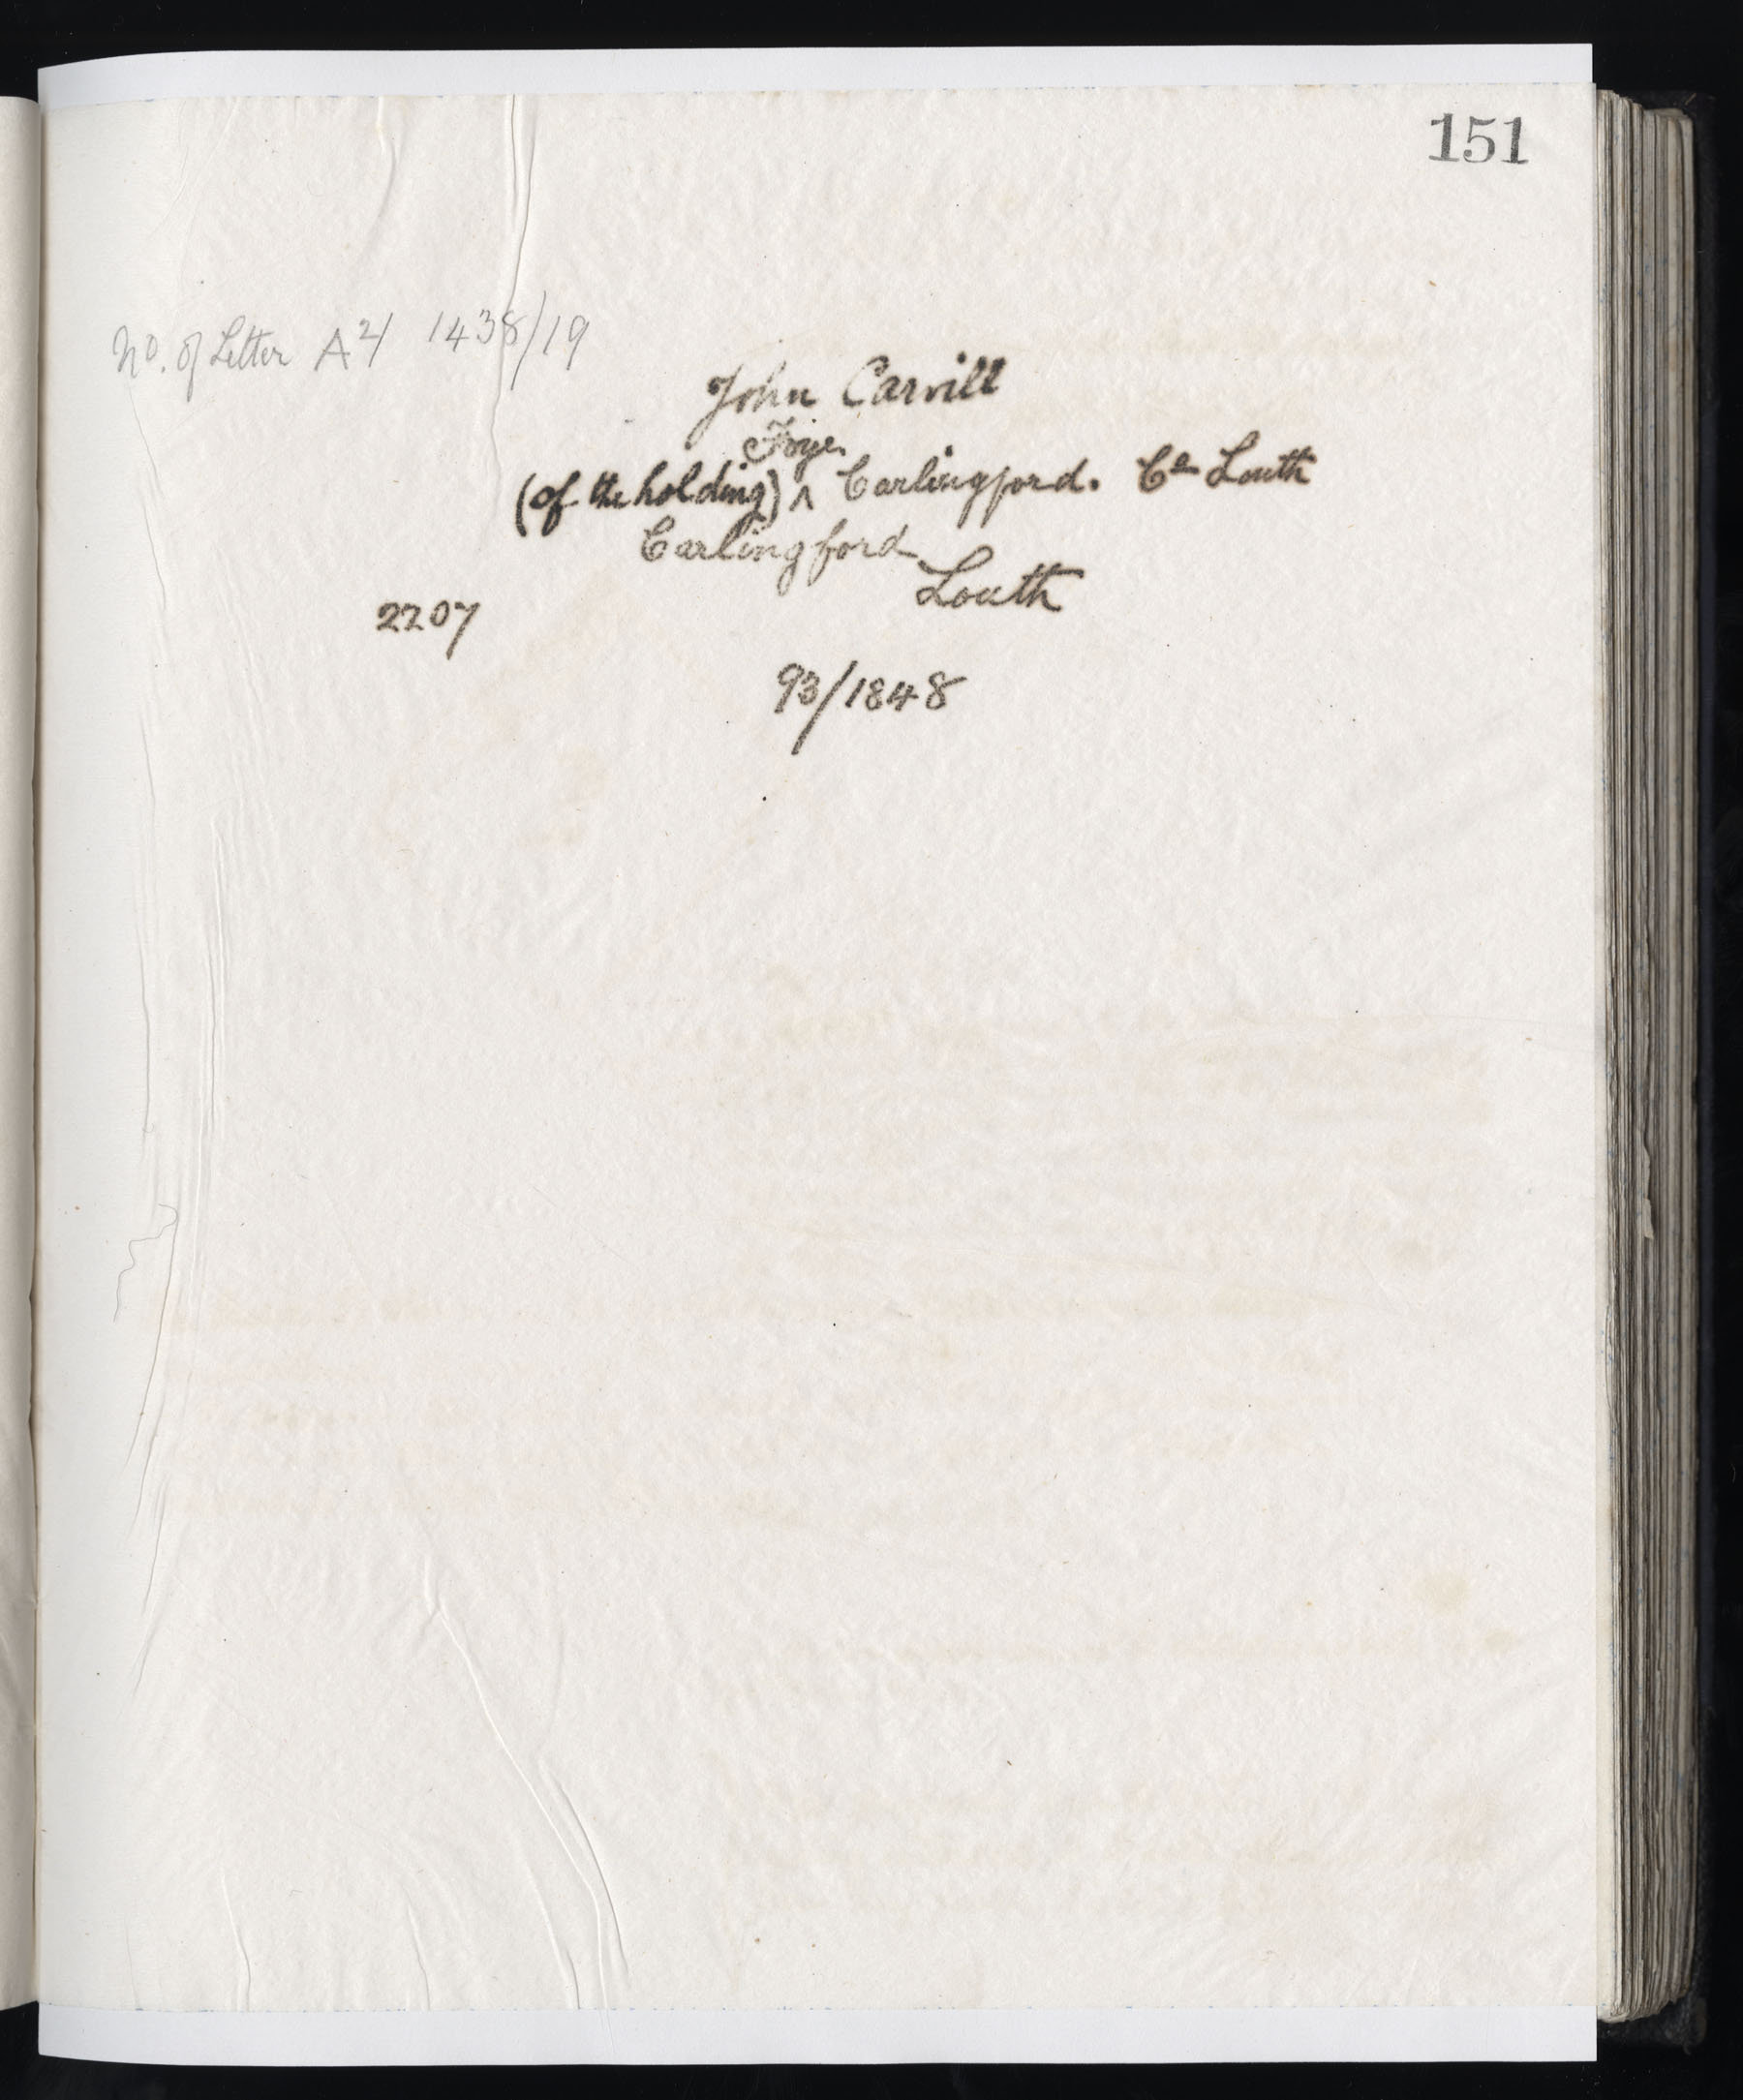 151
No. of Letter A 2/ 1438/19
John Carvill
Foye
(of the holding) ^ Carlingford. Co Louth
Carlingford
Louth
2207
93/1848